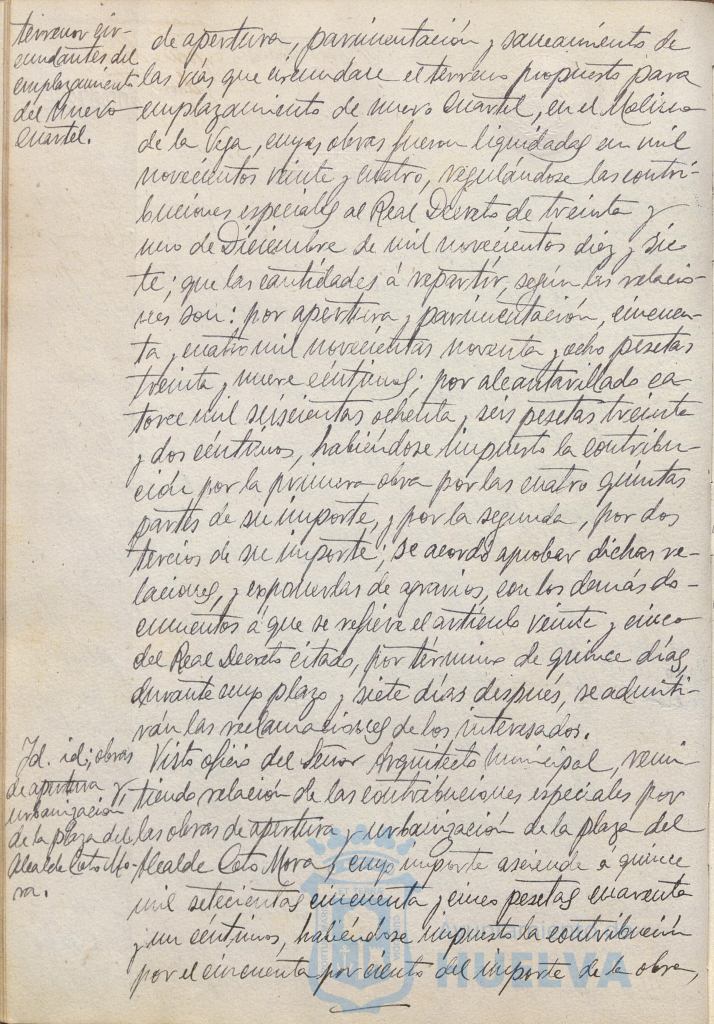 terrenos cir-
cundantes del
emplazamiento
del nuevo
cuartel.
de apertura, pavimentación y saneamiento de
las vías que circundan el terreno propuesto para
emplazamiento de nuevo Cuartel, en el Molino
de la Vega, cuyas obras fueron liquidadas en mil
novecientos veinte y cuatro, regulándose las contri-
buciones especiales al Real Decreto de treinta y
uno de Diciembre de mil novecientos diez y sie-
te; que las cantidades á repartir, según las relacio-
nes son: por apertura y pavimentación, cincuen-
ta y cuatro mil novecientas noventa y ocho pesetas
treinta y nueve céntimos; por alcantarillado ca-
torce mil seiscientas ochenta y seis pesetas treinta
y dos céntimos, habiéndose impuesto la contribu-
ción por la primera obra por las cuatro quintas
partes de su importe, y por la segunda, por dos
tercios de su importe; se acordó aprobar dichas re-
laciones, y exponerlas de agravios, con los demás do-
cumentos á que se refiere el artículo veinte y cinco
del Real Decreto citado, por término de quince días,
durante cuyo plazo y siete días después, se admiti-
rán las reclamaciones de los interesados.
Id. id; obras
de apertura y
urbanización
de la plaza del
Alcalde Coto Mo-
ra.
Visto oficio del Señor Arquitecto Municipal, remi-
tiendo relación de las contribuciones especiales por
las obras de apertura y urbanización de la plaza del
Alcalde Coto Mora, cuyo importe asciende á quince
mil setecientas cincuenta y cinco pesetas cuarenta
y un céntimos, habiéndose impuesto la contribución
por el cincuenta por ciento del importe de la obra,
HUELVA